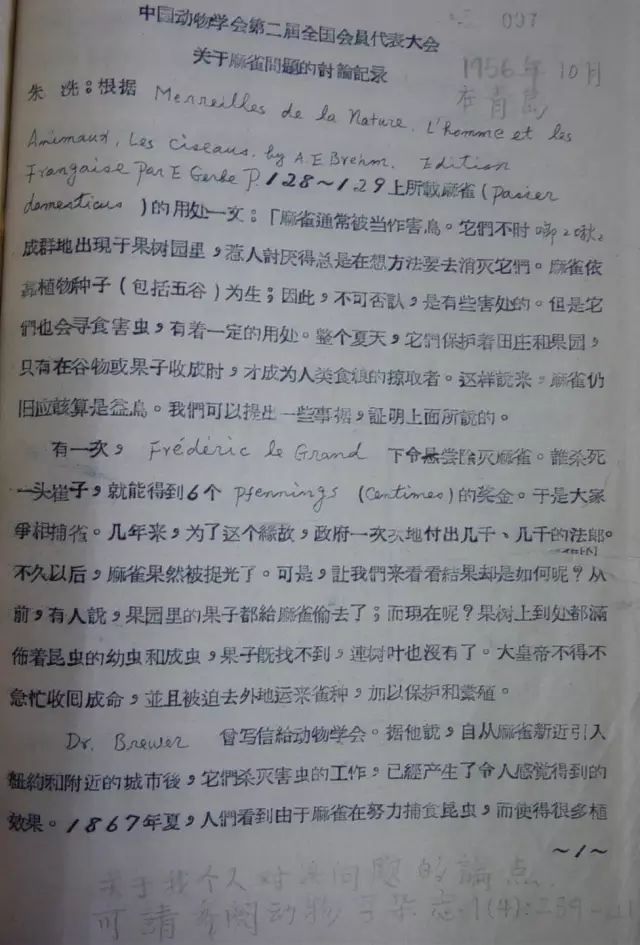 097
中国动物学会第二届全国会員代表大会
关于麻雀問題的討論記录
1956年10月
在青島
朱 洗：根据 Merreilles de la Nature. L'homme et les
Animaux, Les Oiseaux, by A.E Brehm. Edition
Française Par E Gerbe P. 128～129上所載麻雀（Passer
domesticus ）的用处一文：「麻雀通常被当作害鳥。它們不时唧々啾々
成群地出現于果树园里，惹人討厌得总是在想方法要去消灭它們。麻雀依
靠植物种子（包括五谷）为生；因此，不可否認，是有些害处的。但是它
們也会寻食害虫，有着一定的用处。整个夏天，它們保护着田庄和果园，
只有在谷物或果子收成时，才成为人类食粮的掠取者。这样説来，麻雀仍
旧应該算是益鳥。我們可以提出一些事据，証明上面所說的。
有一次， Frédéric le Grand 下令悬尝除灭麻雀。誰杀死
一头雀子，就能得到6个 Pfennings (Centimes) 的奖金。于是大家
爭相捕雀。几年来，为了这个緣故，政府一次次地付出几千、几千的法郎。
不久以后，麻雀果然被捉光了。可是，讓我們来看看結果却是如何呢？从
前，有人說，果园里的果子都給麻雀偷去了；而現在呢？果树上到处都滿
佈着昆虫的幼虫和成虫，果子既找不到，連树叶也沒有了。大皇帝不得不
急忙收回成命，並且被迫去外地运来雀种，加以保护和繁殖。
Dr. Brewer 曾写信給动物学会。据他說，自从麻雀新近引入
紐約和附近的城市後，它們杀灭害虫的工作，已經产生了令人感覚得到的
效果。1867年夏，人們看到由于麻雀在努力捕食昆虫，而使得很多植
～1～
关于我个人对此問題的論点，
可請参閱动物学杂志1(4):239-